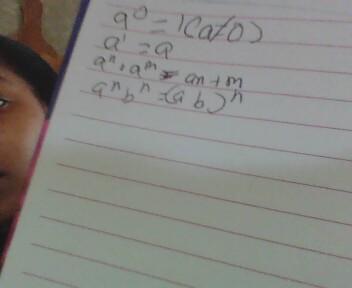 a⁰ = 1(a≠0)
a¹ = a
aⁿ · aᵐ = an + m
aⁿbⁿ = (a b)ⁿ